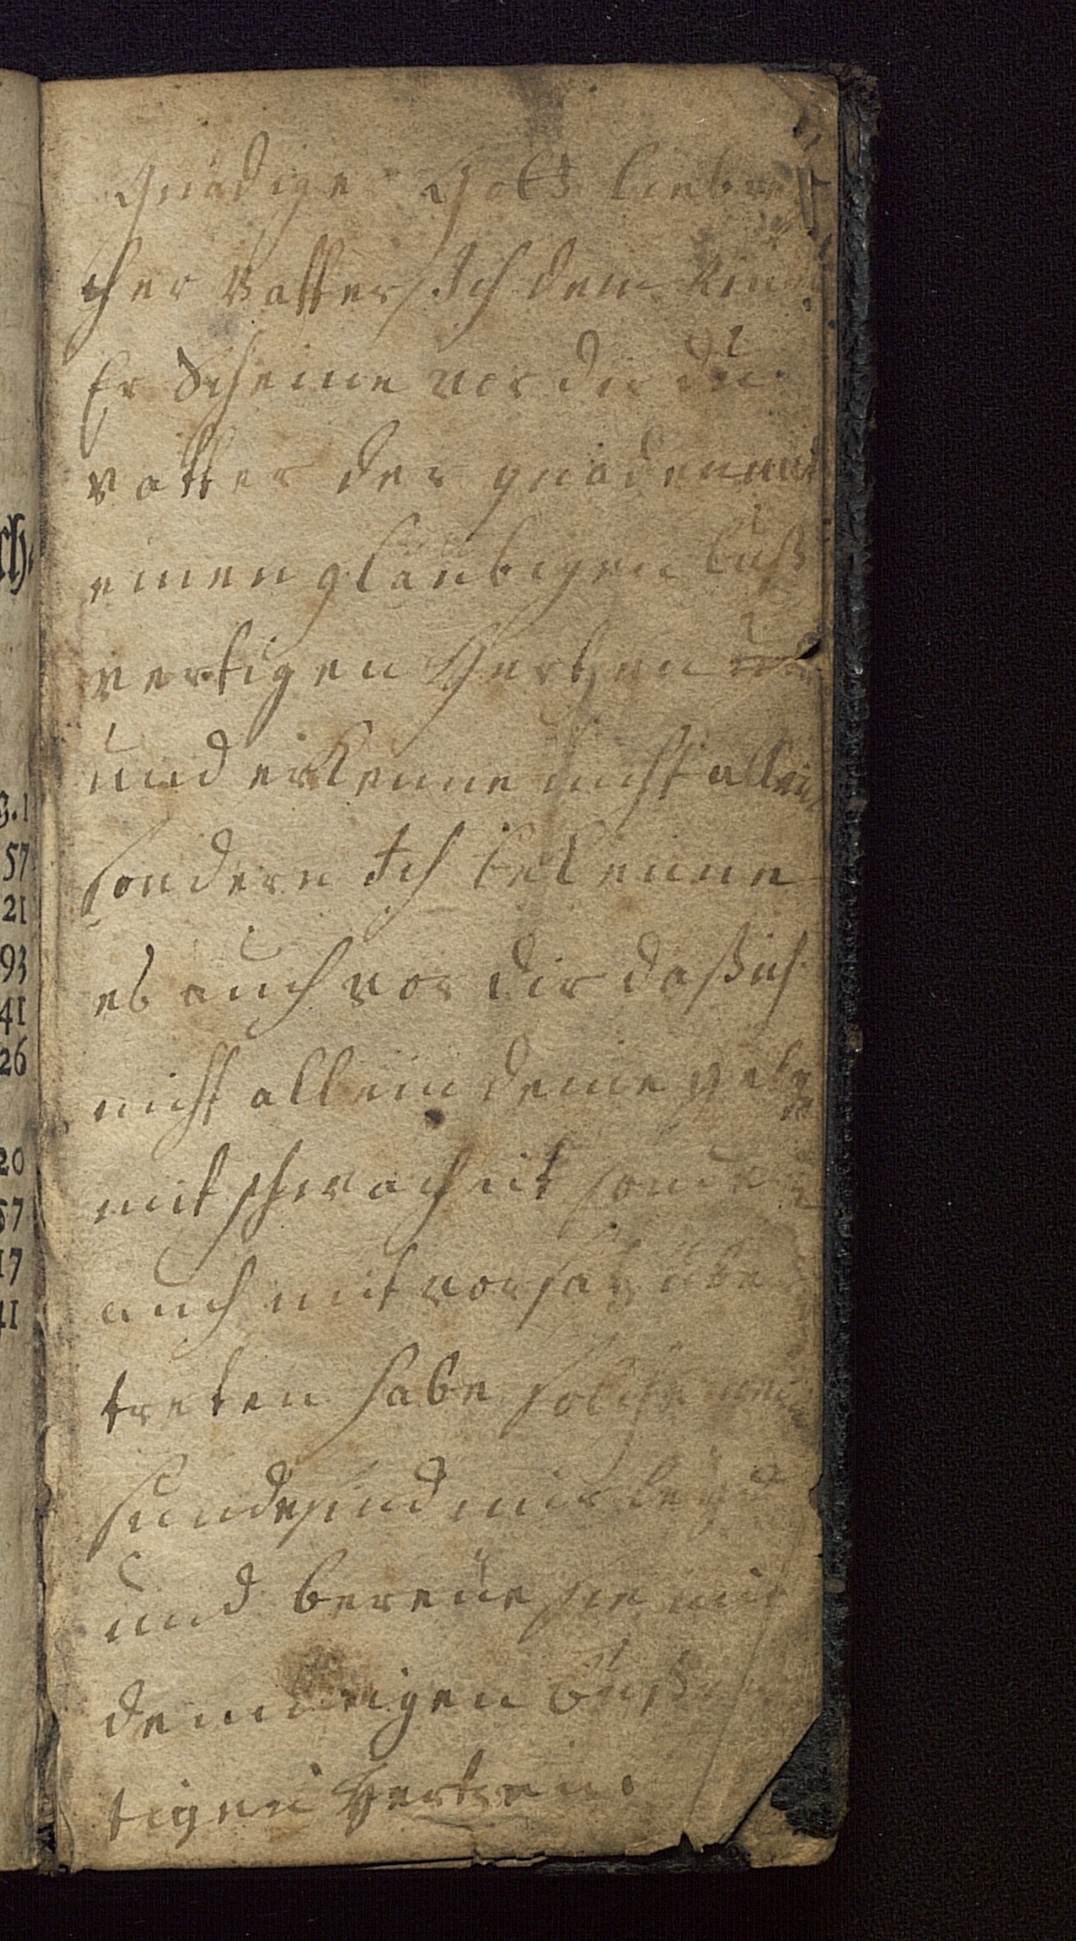 Gnädiger Gott liebrei
cher Vatter Ich dein Kind
Er Scheine vor dir du
vatter der gnaden mit
einen gläubigen buß
vertigen Hertzen
und erkenne nicht allein
sondern Ich bekenne
es auch vor dir daß ich
nicht allein deine gebo
mit schwacheit sonder
auch mit vorsatz über
treten habe solche meine
sünde sind mir leyd
und bereüe sie mit
demütigen buß
tigen Hertzen.
ch.
g. 1
57
21
93
41
26
20
57
17
41